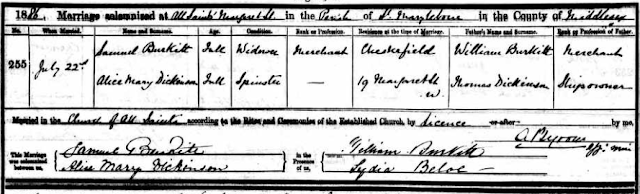 1886. Marriage solemnized at All Saints Margaret St. in the Parish of St. Marylebone in the County of Middlesex
No. When Married. Name and Surname. Age. Condition. Rank or Profession. Residence at the time of Marriage. Father's Name and Surname. Rank or Profession of Father.
255 July 22nd Samuel Burkitt Full Widower Merchant Chesterfield William Burkitt Merchant
Alice Mary Dickinson Full Spinster — 19 Margaret St. W. Thomas Dickinson Shipowner
Married in the Church of All Saints according to the Rites and Ceremonies of the Established Church, by licence or after by me,
This Marriage was solemnized between us, Samuel Burkitt
Alice Mary Dickinson
in the Presence of us, William Burkitt
Lydia Beloe